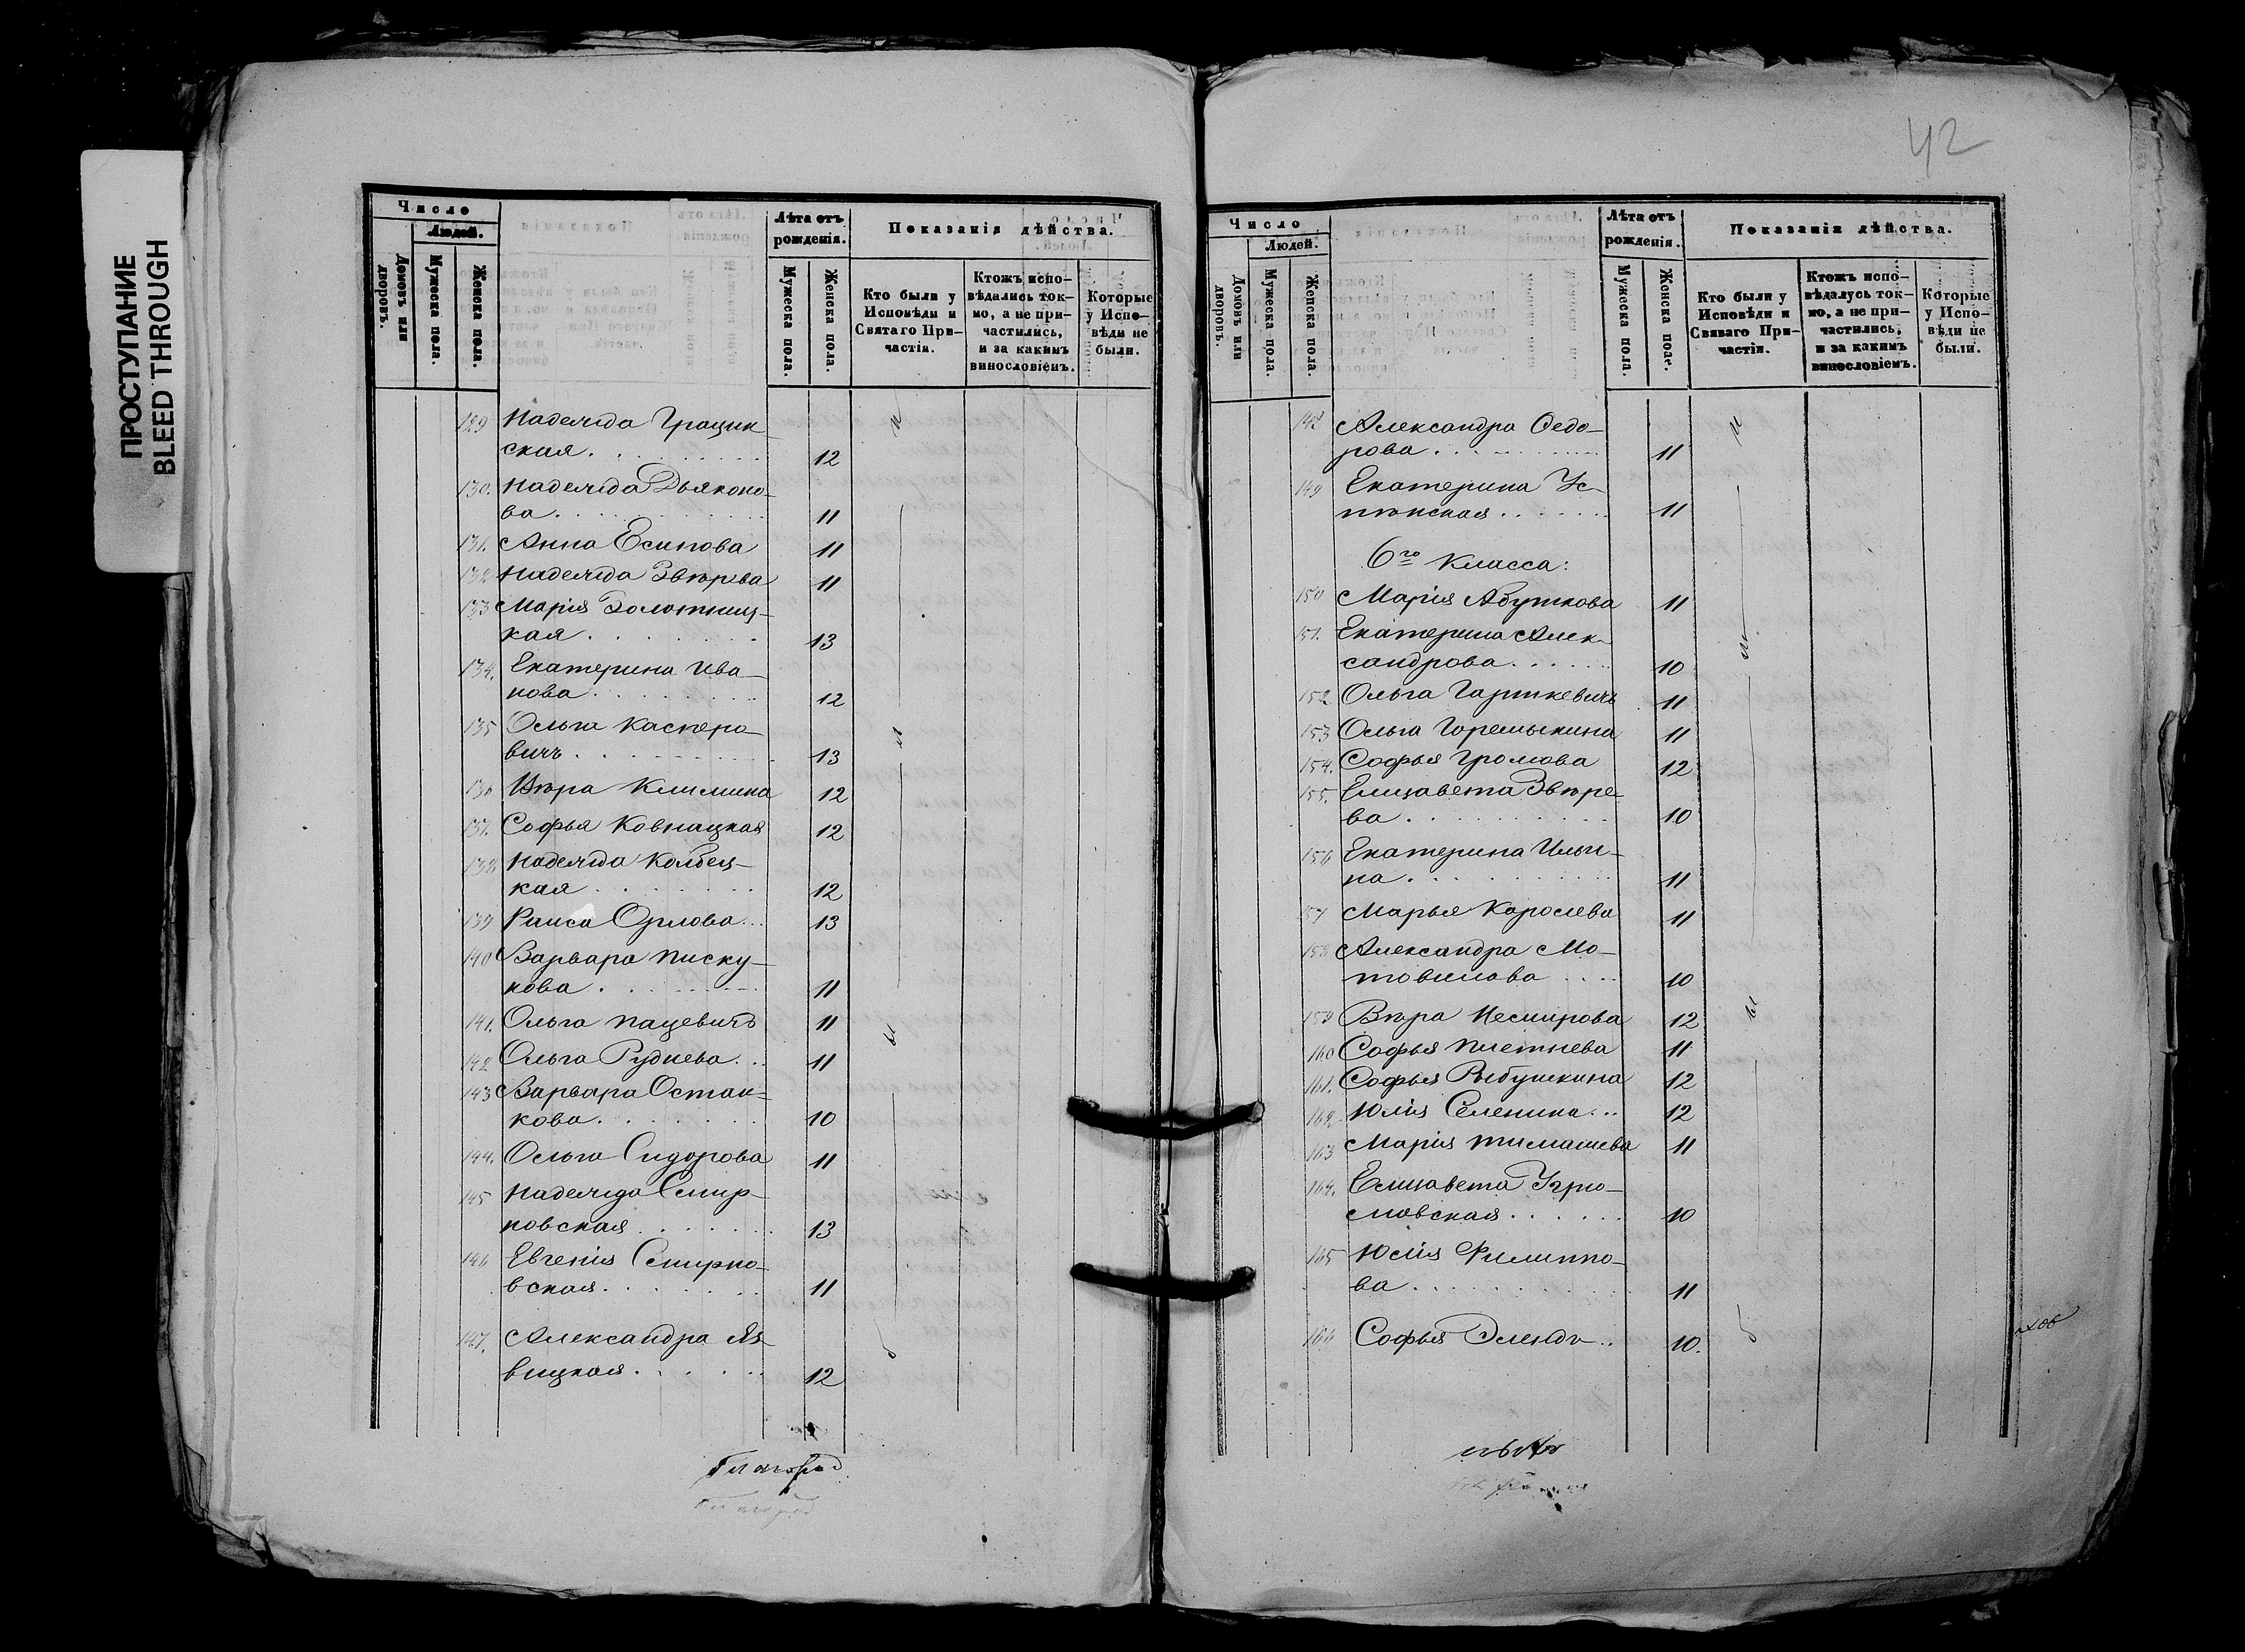 ПРОСТУПАНИЕ
BLEED THROUGH
Число
Людей.
Домовъ или дворовъ.
Мужеска пола.
Женска пола.
Лѣта отъ рожденія.
Мужеска пола.
Женска пола.
Показанія дѣйства.
Кто были у Исповѣди и Святаго Причастія.
Ктожъ испо-
вѣдались ток-
мо, а не при-
частились,
и за какимъ
винословіемъ.
Которые
у Испо-
вѣди не
были.
129 Надежда Грацин-
ская 12
130. Надежда Дьяконо-
ва 11
131. Анна Есипова 11
132 Надежда Звѣрева 11
133 Марія Золотниц-
кая 13
134. Екатерина Ива-
нова 12
135 Ольга Касперо-
вичъ 13
136 Вѣра Климина 12
137. Софья Ковнацкая 12
138 Надежда Колбец-
кая 12
139 Раиса Орлова 13
140 Варвара Писку-
нова 11
141. Ольга Пацевичъ 11
142 Ольга Руднева 11
143 Варвара Остан-
кова 10
144. Ольга Сидорова 11
145 Надежда Смир-
новская 13
146 Евгенія Смирно-
вская 11
147. Александра Яз-
вицкая 12
и
и
и
б
42
Число
Людей.
Домовъ или дворовъ.
Мужеска пола.
Женска пола.
Лѣта отъ рожденія.
Мужеска пола.
Женска поле.
Показанія дѣйства.
Кто были у
Исповѣди и
Святаго При-
частія.
Ктожъ испо-
вѣдалусь ток-
мо, а не при-
частились,
и за какимъ
винословіемъ.
Которые
у Испо-
вѣди не
были.
148 Александра Ѳедо-
рова 11
149 Екатерина Ус-
пѣнская 11
6го Класса:
150 Марія Абуткова 11
151. Екатерина Алек-
сандрова 10
152 Ольга Гариткевичъ 11
153 Ольга Горемыкина 11
154. Софья Громова 12
155. Елизавета Звѣре-
ва 10
156 Екатерина Ильи-
на 11
157 Марья Королева 11
158 Александра Мо-
товилова 10
159 Вѣра Несмирова 12
160 Софья Плетнева 11
161. Софья Рыбушкина 12
162. Юлія Селенина 12
163 Марія Тимашева 11
164. Елизавета Угрю-
мовская 10
165 Юлія Филиппо-
ва 11
166 Софья Эленди 10.
б